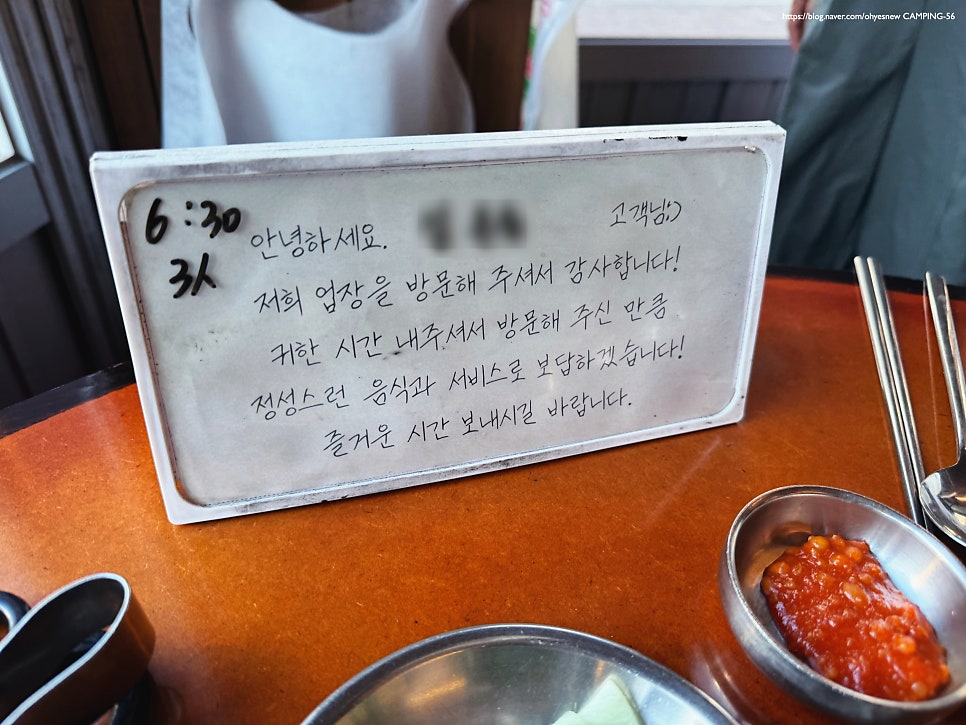 https://blog.naver.com/ohyesnew CAMPING-56
6:30
3人
안녕하세요. 고객님:)
저희 업장을 방문해 주셔서 감사합니다!
귀한 시간 내주셔서 방문해 주신 만큼
정성스런 음식과 서비스로 보답하겠습니다!
즐거운 시간 보내시길 바랍니다.